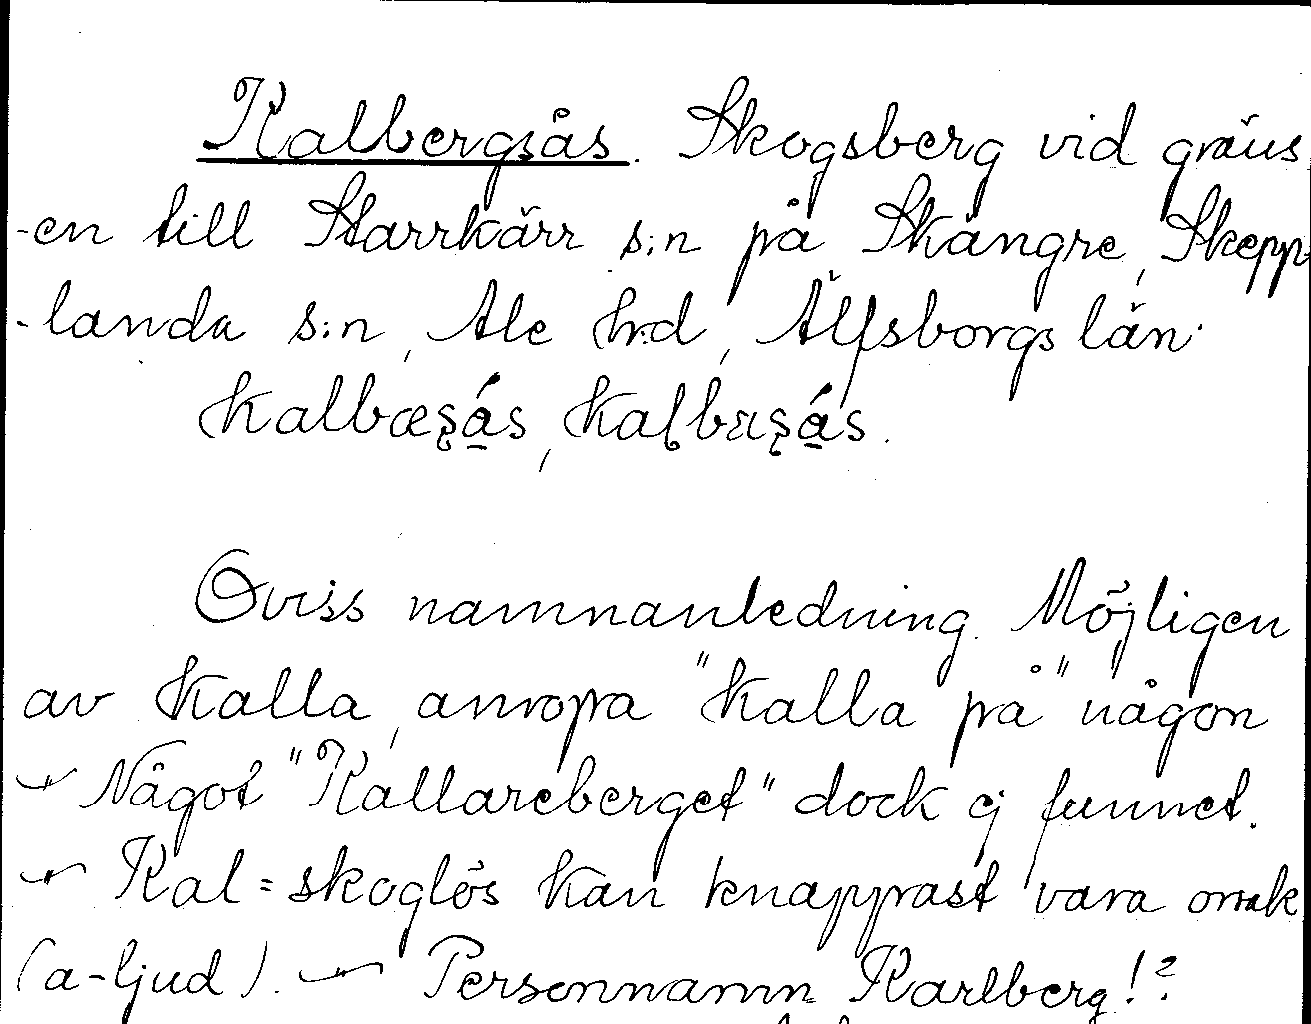 Kalbergsås. Skogsberg vid gräns
-en till Starrkärr s:n på Skångre, Skepp-
-landa s:n, Ale hrd, Älfsborgs län.
kalbæsás,
Oviss namnanledning. Möjligen
av kalla, anropa "kalla på" någon
– Något "Kallareberget" dock ej funnet.
– Kal = skoglös kan knappast vara orsak
(a-ljud). – Personnamn Karlberg!?